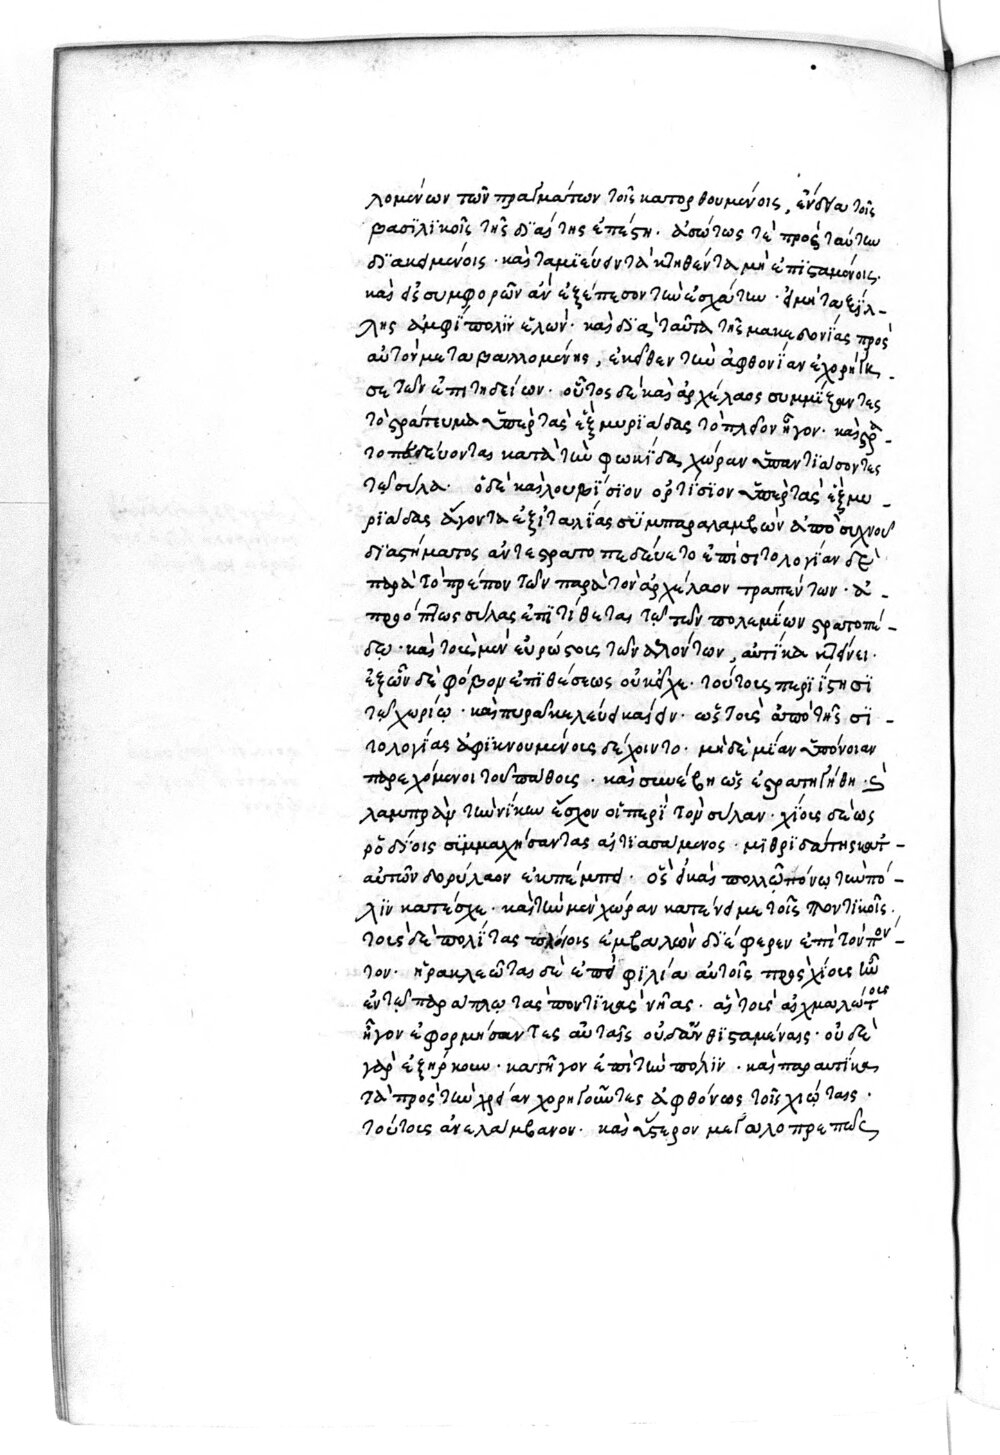 λομένων τῶν πραγμάτων τοῖς κατορθουμένοις, ἔνδεια τοῖς
βασιλικοῖς τῆς διαίτης ἐπέστη· ἀσώτως τὲ πρὸς ταύτην
διακειμένοις· καὶ ταμιεύειν τὰ κτηθέντα μὴ ἐπισταμένοις·
καὶ εἰς συμφορῶν ἂν ἐξέπεσον τὴν ἐσχάτην· εἰ μὴ ταξίλ-
λης ἀμφίπολιν ἑλών· καὶ διὰ ταῦτα τῆς μακεδονίας πρὸς
αὐτὸν μεταβαλλομένης, ἐκεῖθεν τὴν ἀφθονίαν ἐχορήγη-
σε τῶν ἐπιτηδείων· οὗτος δὲ καὶ ἀρχέλαος συμμίξαντες
τὸ στράτευμα ὑπὲρ τὰς ἓξ μυριάδας τὸ πλεῖον ἦγον· καὶ στρα-
τοπεδεύονται κατὰ τὴν φωκίδα χώραν ὑπαντιάσοντες
τῷ σύλα· ὁ δὲ καὶ λούκιον ὁρτίσιον ὑπὲρ τὰς ἓξ μυ
ριάδας ἄγοντα ἐξ ἰταλίας συμπαραλαβὼν ἀπὸ συχνοῦ
διαστήματος ἀντεστρατοπεδεύετο ἐπὶ σιτολογίαν δὲ
παρὰ τὸ πρέπον τῶν παρὰ τὸν ἀρχέλαον τραπέντων· ἀ-
προόπτως σύλας ἐπιτίθεται τῷ τῶν πολεμίων στρατοπέ-
δῳ· καὶ τοὺς μὲν εὐρώστους τῶν ἁλόντων, αὐτίκα κτείνει·
ἐξ ὧν δὲ φόβον ἐπιθέσεως οὐκ εἶχε· τούτους περιίστησι
τῷ χωρίῳ· καὶ πυρὰ κελεύει καίειν· ὡς τοὺς ἀπὸ τῆς σι-
τολογίας ἀφικνουμένους δέχοιντο· μηδεμίαν ὑπόνοιαν
παρεχόμενοι τοῦ πάθους· καὶ συνέβη ὡς ἐστρατηγήθη· καὶ
λαμπρὰν τὴν νίκην ἔσχον οἱ περὶ τὸν σύλαν· χίους δὲ ὡς
ῥοδίοις συμμαχήσαντας αἰτιασάμενος· μιθριδάτης κατ᾽-
αὐτῶν δορύλαον ἐκπέμπει· ὃς εἰ καὶ πολλῷ πόνῳ τὴν πό-
λιν κατέσχε· καὶ τὴν μὲν χώραν κατένειμε τοῖς ποντικοῖς·
τοὺς δὲ πολίτας πλοίοις ἐμβαλὼν διέφερεν ἐπὶ τὸν πόν-
τον· ἡρακλεῶται δὲ ἐπεὶ φιλία αὐτοῖς πρὸς χίους ἦν
ἐν τῷ παράπλῳ τὰς ποντικὰς νῆας· αἳ τοὺς αἰχμαλώτους
ἦγον ἐφορμήσαντες αὐταῖς οὐδ᾽ ἀνθισταμέναις· οὐδὲ
γὰρ ἐξήρκουν· κατῆγον ἐπὶ τὴν πόλιν· καὶ παραυτίκα
τὰ πρὸς τὴν χρείαν χορηγοῦντες ἀφθόνως τοῖς χιώταις·
τούτους ἀνελάμβανον· καὶ ὕστερον μεγαλοπρεπῶς